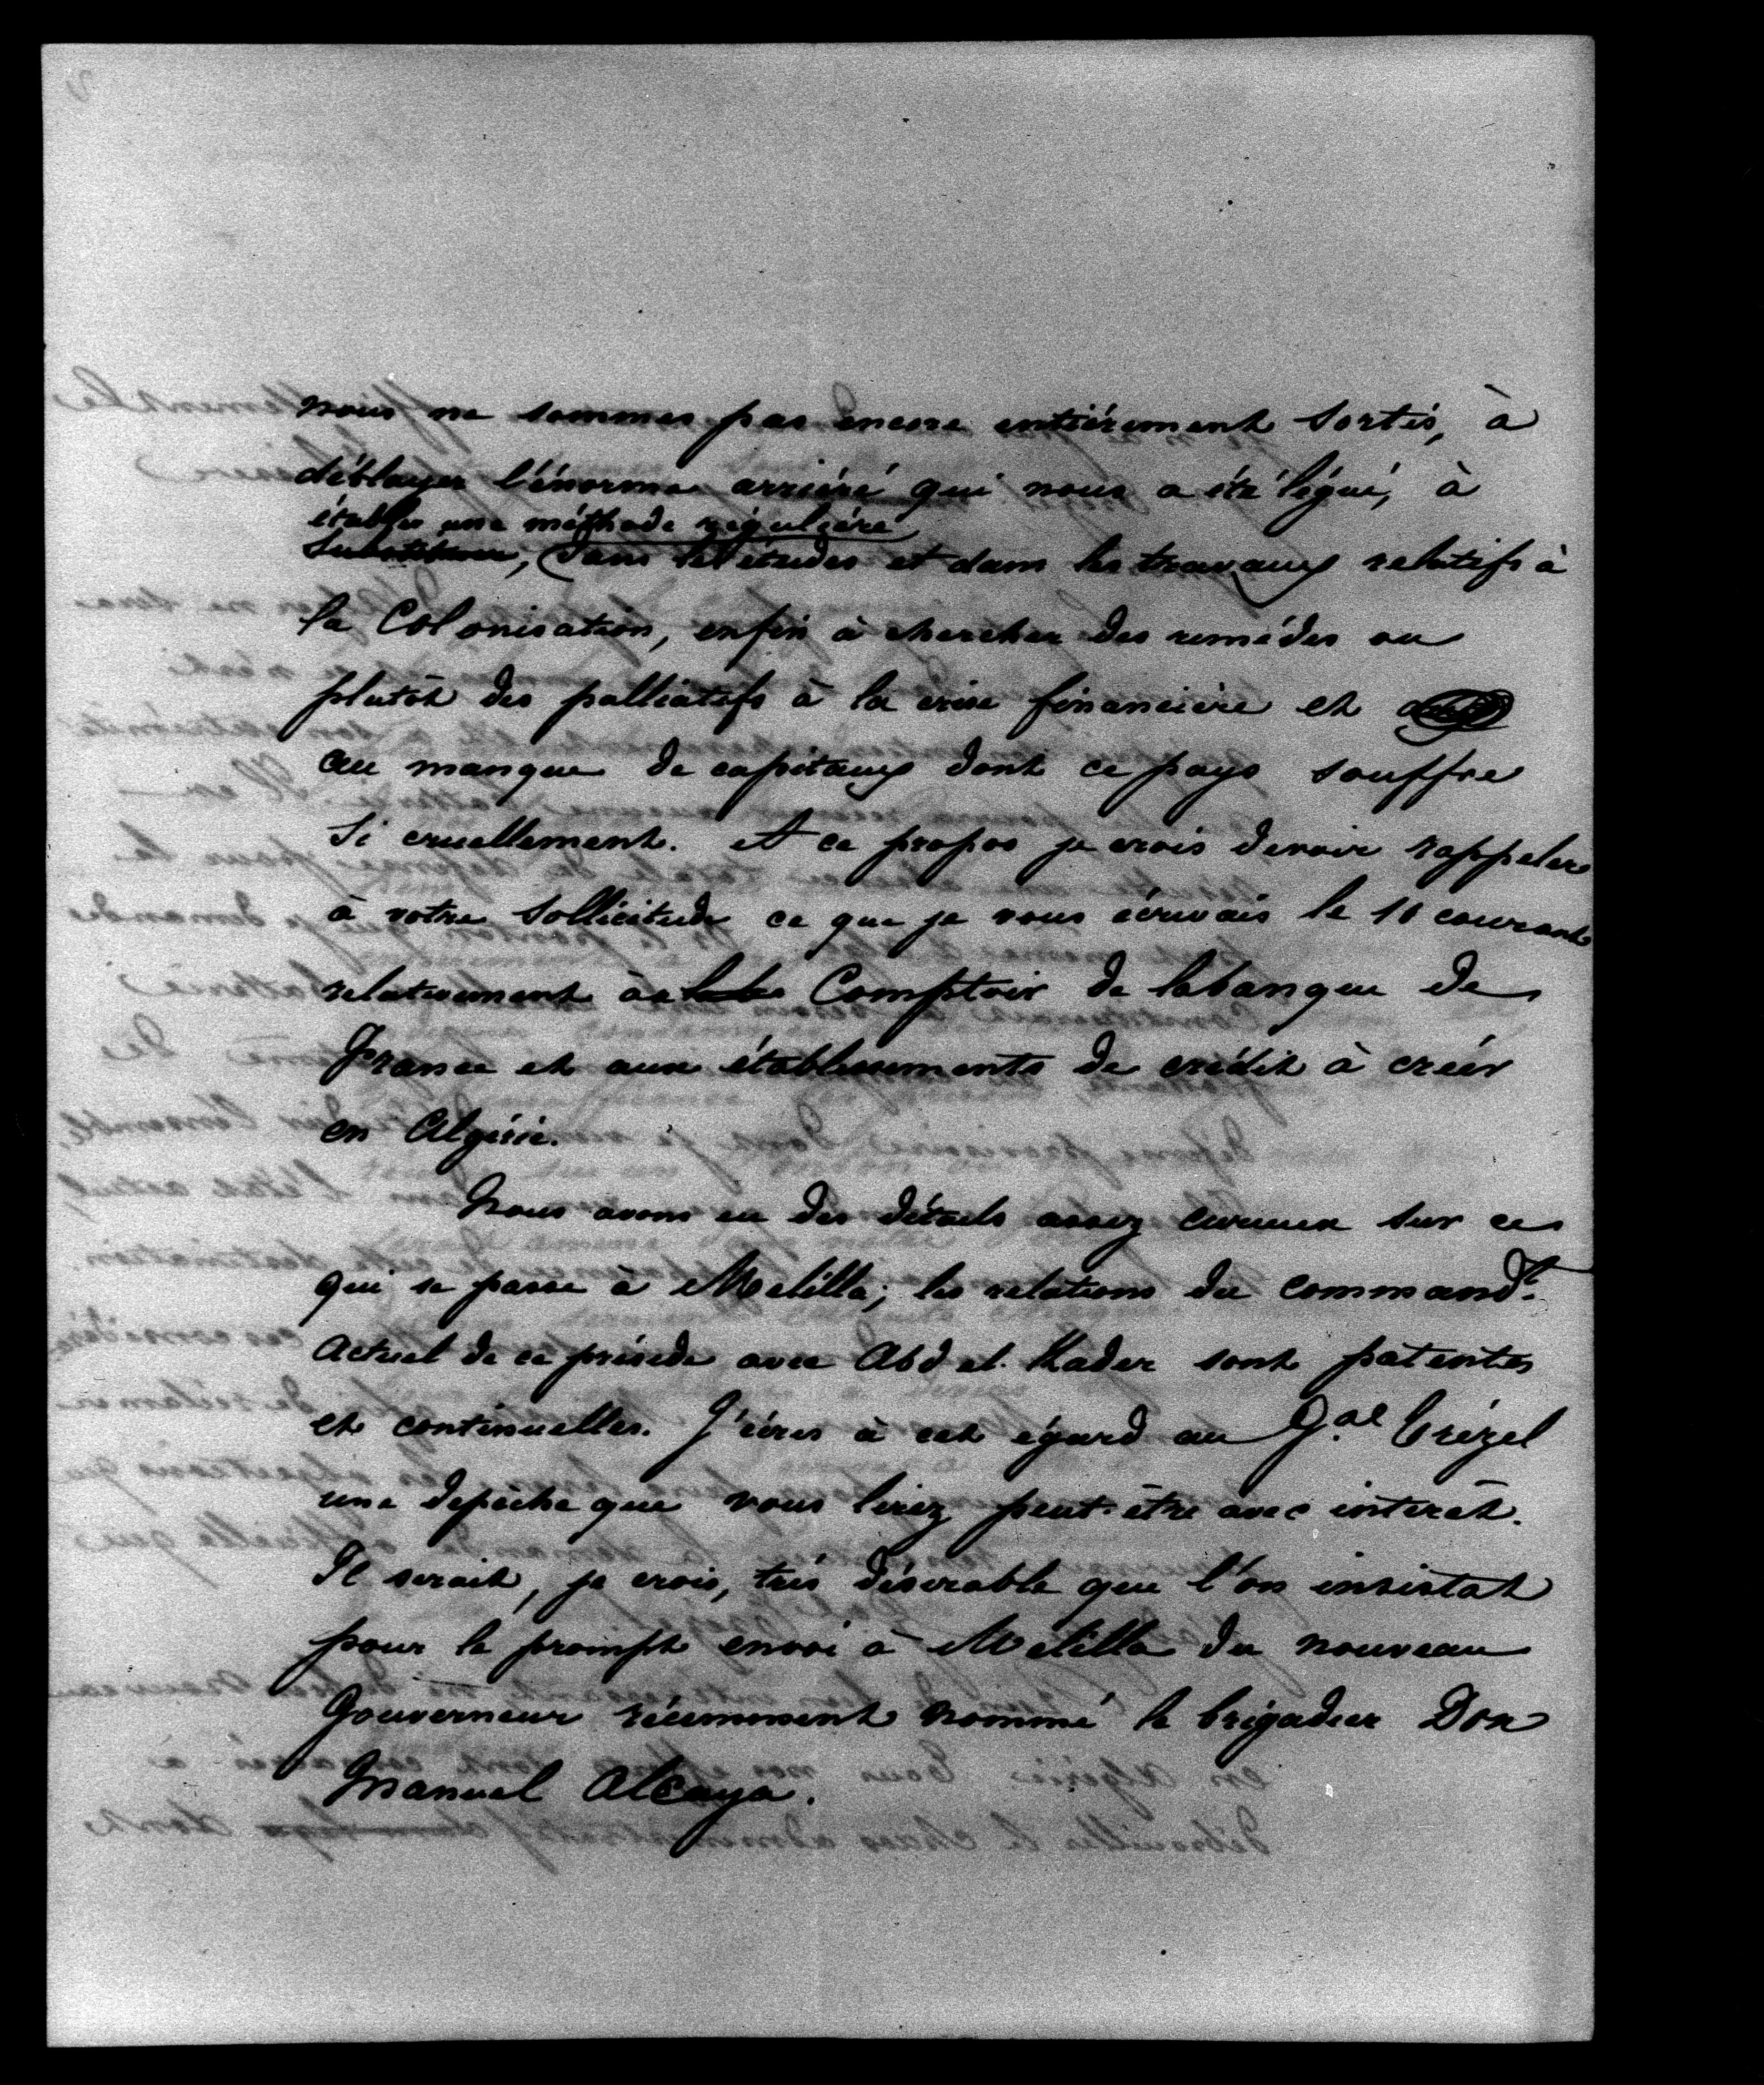 nous ne sommes pas encore entiérement sortis, à
déblayer l'énorme arriéré qui nous a été légué, à
établir une méthode réguliére
dans les études et dans les travaux relatifs à
la Colonisation, enfin à chercher des remédes ou
plutôt des palliatifs à la crise financière et
au manque de capitaux dont ce pays souffre
si cruellement. A ce propos je crois devoir rappeler
à votre sollicitude ce que je vous écrivais le 10 courant
relativement au Comptoir de la banque de
France et aux établissements de crédit à créer
en Algérie.
Nous avons eu des détails assez curieux sur ce
qui se passe à Melilla; les relations du command.t
actuel de ce préside avec Abd el. Kader sont patentes
et continuelles. J'écris à cet égard au G.al Trézel
une depêche que vous lirez peut-être avec intérêt.
Il serait, je crois, très désirable que l'on insistat
pour le prompt envoi à Melilla du nouveau
Gouverneur récemment nommé le brigadier Don
Manuel Alcaya.